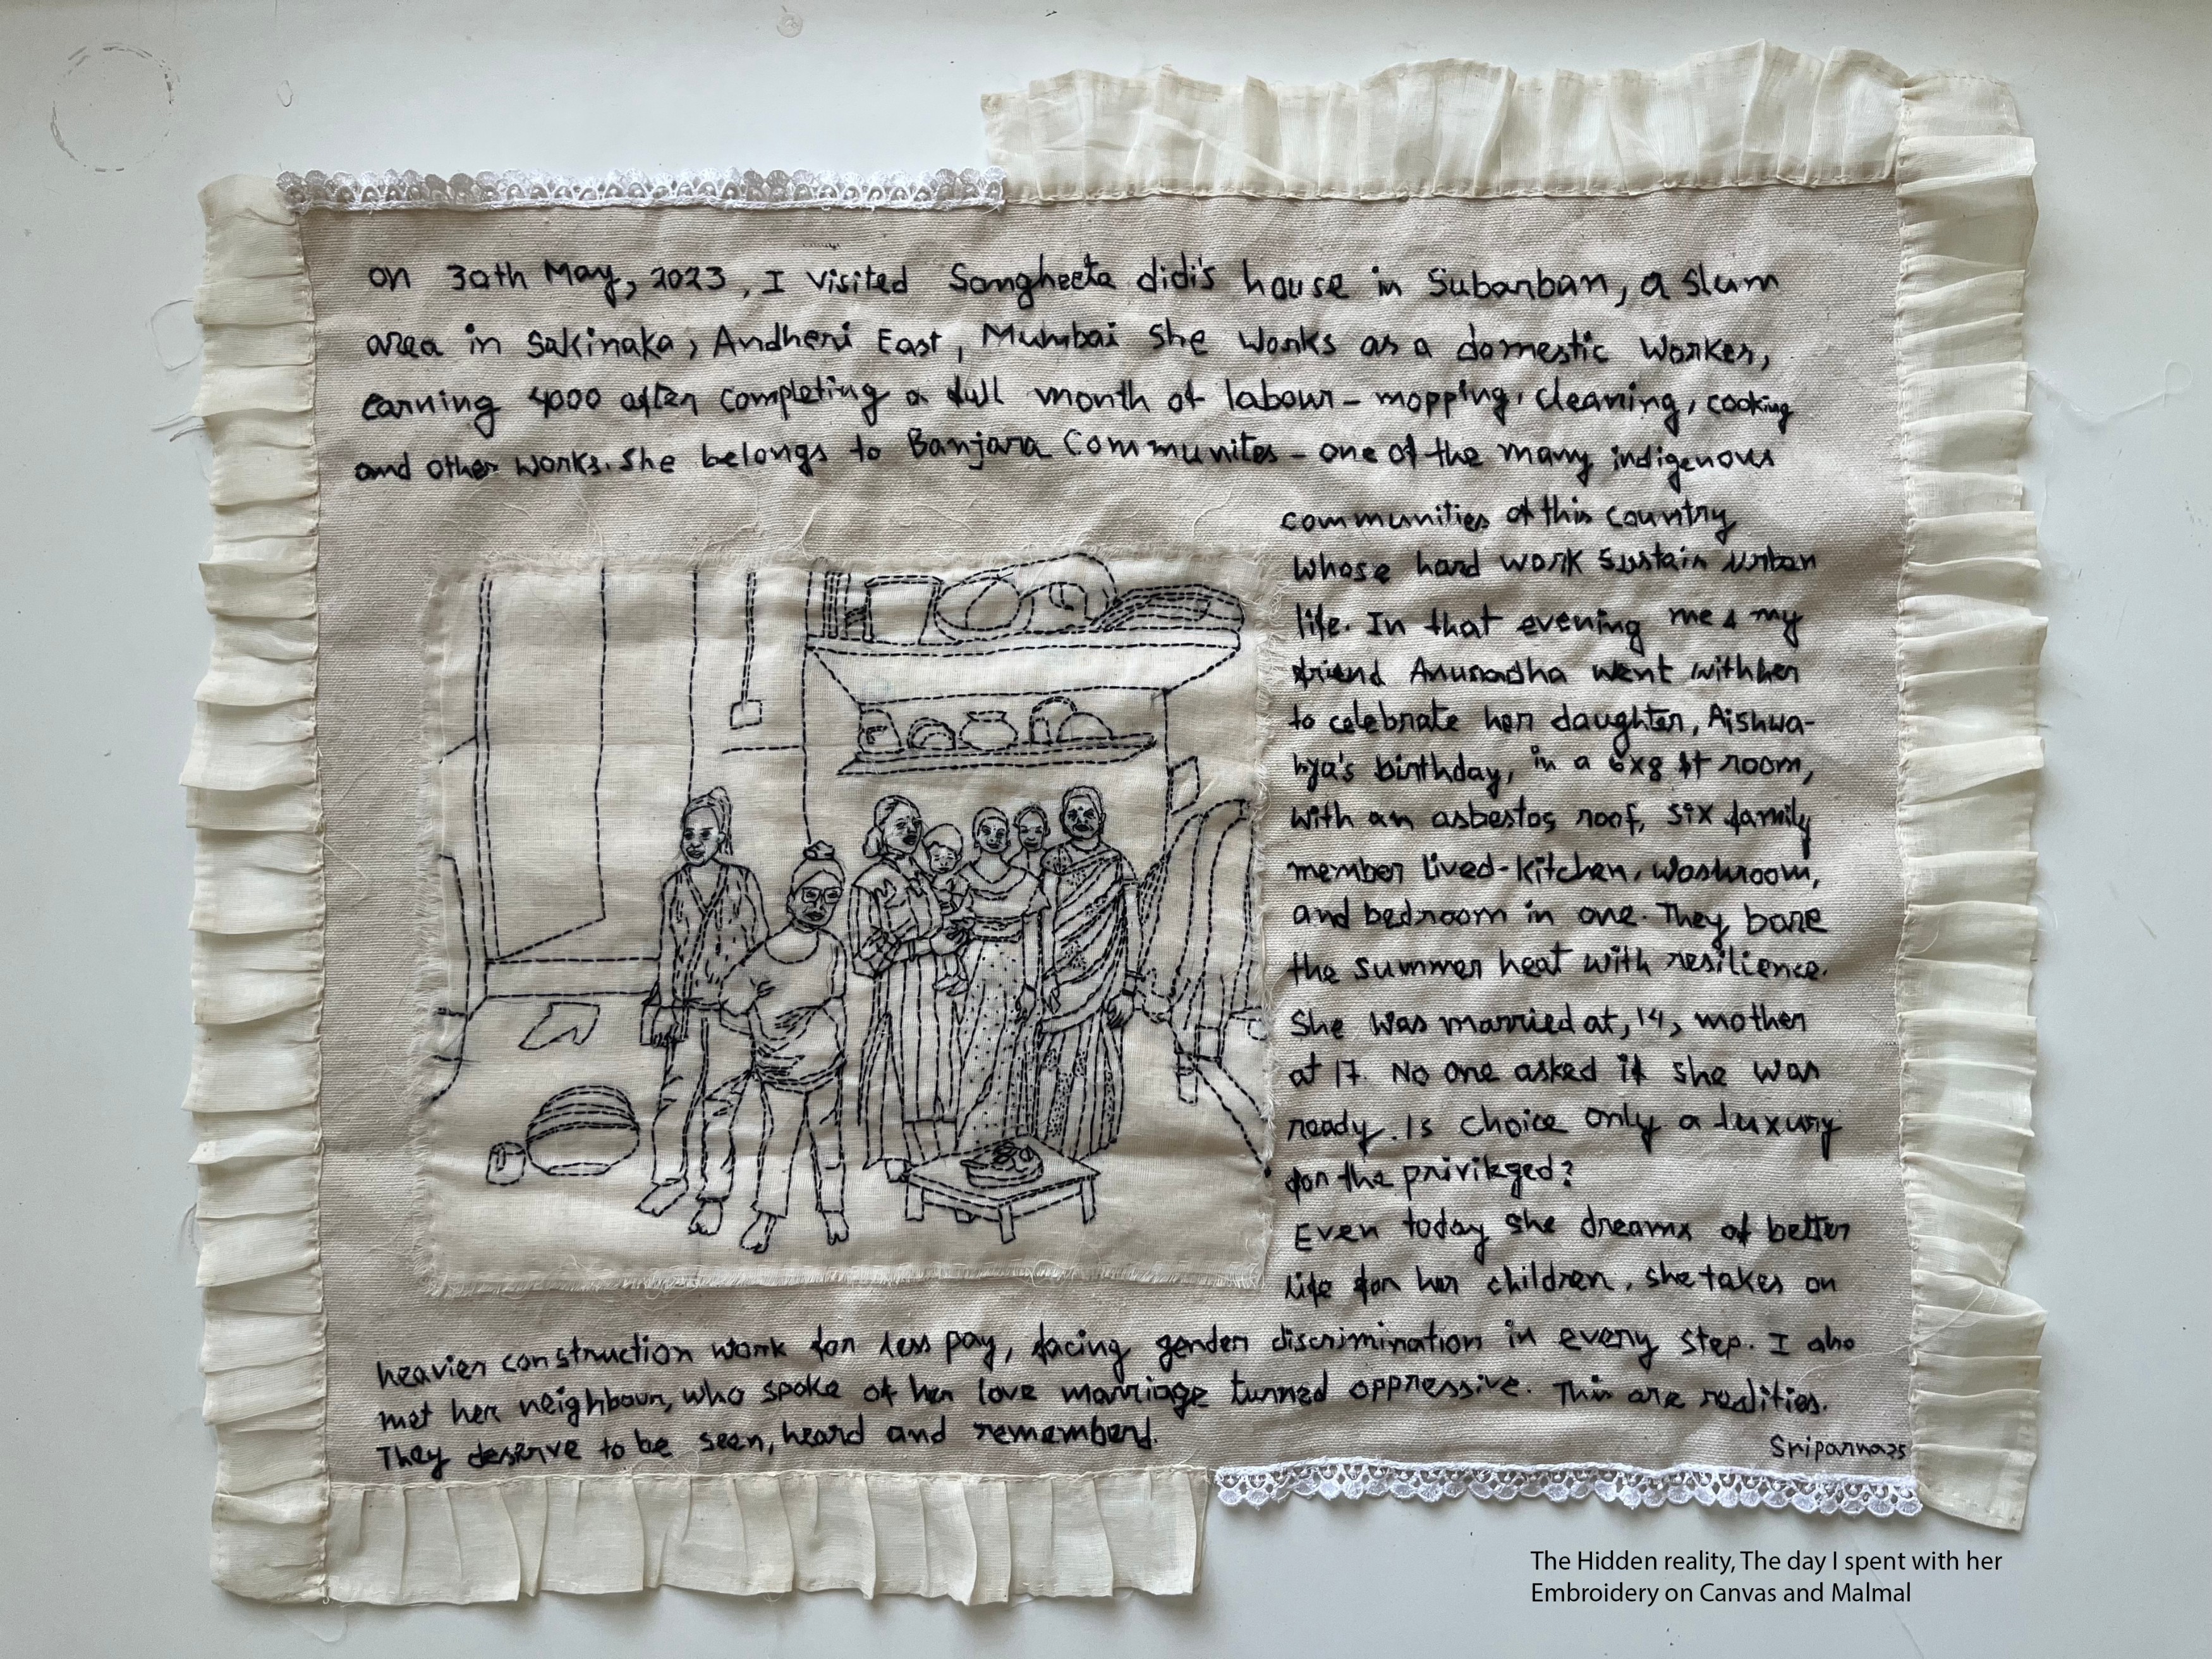 on 30th May, 2023, I visited Sangheeta didi's house in Subarban, a slum
area in Sakinaka, Andheri East, Mumbai she works as a domestic worker,
earning 4000 after completing a full month of labour - mopping, cleaning, cooking
and other works. She belongs to Banjara Communites - one of the many indigenous
communities of this country
whose hard work sustain urban
life. In that evening me & my
friend Anuradha went with her
to celebrate her daughter, Aishwa-
rya's birthday, in a 6x8 ft room,
with an asbestos roof, six family
member lived-kitchen, washroom,
and bedroom in one. They bare
the summer heat with resilience.
She was married at, 14, mother
at 17. No one asked if she was
ready. Is choice only a luxury
for the privileged?
Even today she dreams of better
life for her children. she takes on
heavier construction work for less pay, facing gender discrimination in every step. I also
met her neighbour, who spoke of her love marriage turned oppressive. This are realities.
They deserve to be seen, heard and rememberd.
Sriparna25
The Hidden reality, The day I spent with her
Embroidery on Canvas and Malmal